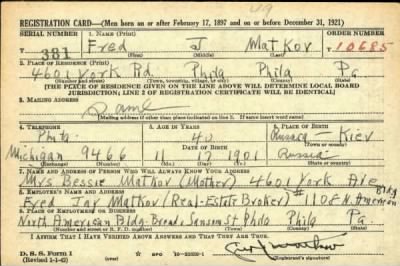 REGISTRATION CARD—(Men born on or after February 17, 1897 and on or before December 31, 1921)
SERIAL NUMBER 1. NAME (Print) ORDER NUMBER
T 381 Fred J Matkov 10685
(First) (Middle) (Last)
2. PLACE OF RESIDENCE (Print)
4601 York Rd. Phila Phila Pa.
(Number and street) (Town, township, village, or city) (County) (State)
[THE PLACE OF RESIDENCE GIVEN ON THE LINE ABOVE WILL DETERMINE LOCAL BOARD
JURISDICTION; LINE 2 OF REGISTRATION CERTIFICATE WILL BE IDENTICAL]
3. MAILING ADDRESS
Same
[Mailing address if other than place indicated on line 2. If same insert word same]
4. TELEPHONE 5. AGE IN YEARS 6. PLACE OF BIRTH
Phila 40 Russia - Kiev
DATE OF BIRTH (Town or county)
Michigan 9466 11 1901 Russia
(State or country)
7. NAME AND ADDRESS OF PERSON WHO WILL ALWAYS KNOW YOUR ADDRESS
Mrs Bessie Matkov (Mother) 4601 York Ave
8. EMPLOYER'S NAME AND ADDRESS Bldg
Fred Jay Matkov (Real-Estate Broker) #1108 N. American
9. PLACE OF EMPLOYMENT OR BUSINESS
North American Bldg-Broad & Sansom St Phila Phila Pa.
(Number and street or R. F. D. number) (Town) (County) (State)
I AFFIRM THAT I HAVE VERIFIED ABOVE ANSWERS AND THAT THEY ARE TRUE.
D. S. S. Form 1
(Revised 1-1-42) GPO